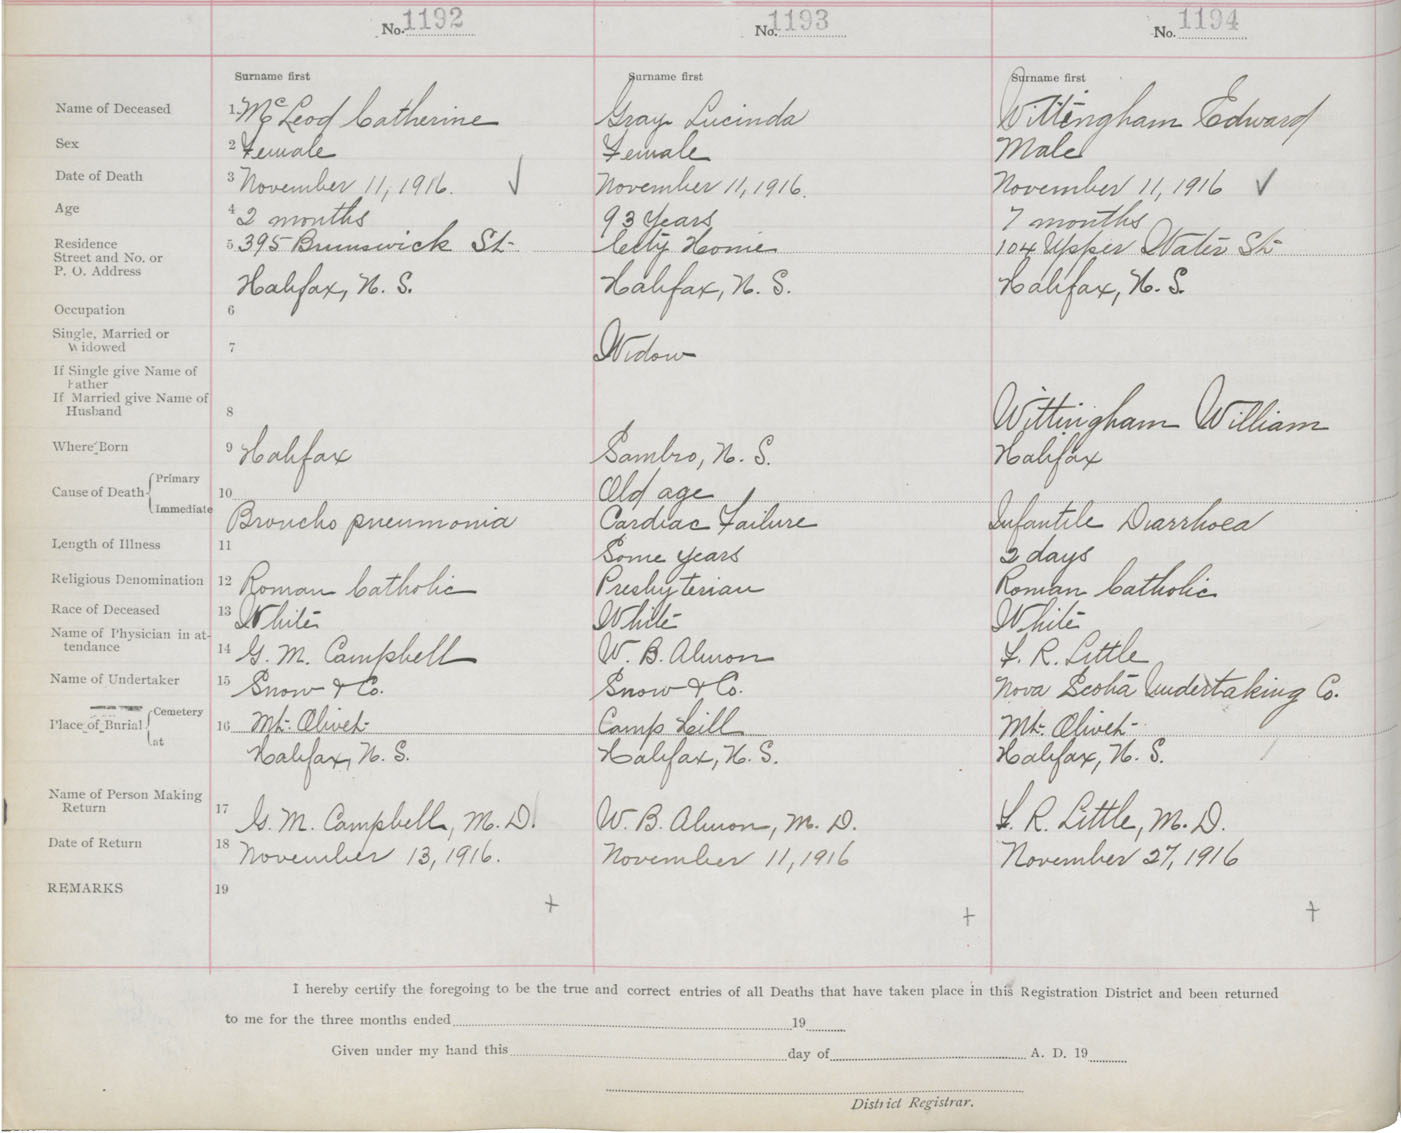 No. 1192 No. 1193 No. 1194
Surname first Surname first Surname first
Name of Deceased 1 McLeod Catherine Gray Lucinda Wittingham Edward
Sex 2 Female Female Male
Date of Death 3 November 11, 1916. November 11, 1916. November 11, 1916
Age 4 2 months 93 years 7 months
Residence 5 395 Brunswick St. City Home 104 Upper Water St.
Street and No. or
P. O. Address Halifax, N. S. Halifax, N. S. Halifax, N. S.
Occupation 6
Single, Married or
Widowed 7 Widow
If Single give Name of
Father
If Married give Name of
Husband 8 Wittingham William
Where Born 9 Halifax Sambro, N. S. Halifax
Cause of Death Primary 10 Old age
Immediate Broncho pneumonia Cardiac Failure Infantile Diarrhoea
Length of Illness 11 Some years 2 days
Religious Denomination 12 Roman Catholic Presbyterian Roman Catholic
Race of Deceased 13 White White White
Name of Physician in at-
tendance 14 G. M. Campbell W. B. Almon F. R. Little
Name of Undertaker 15 Snow & Co. Snow & Co. Nova Scotia Undertaking Co.
Place of Burial Cemetery 16 Mt. Olivet Camp Hill Mt. Olivet
at Halifax, N. S. Halifax, N. S. Halifax, N. S.
Name of Person Making
Return 17 G. M. Campbell, M. D. W. B. Almon, M. D. F. R. Little, M. D.
Date of Return 18 November 13, 1916. November 11, 1916 November 27, 1916
REMARKS 19
I hereby certify the foregoing to be the true and correct entries of all Deaths that have taken place in this Registration District and been returned
to me for the three months ended 19
Given under my hand this day of A. D. 19
District Registrar.